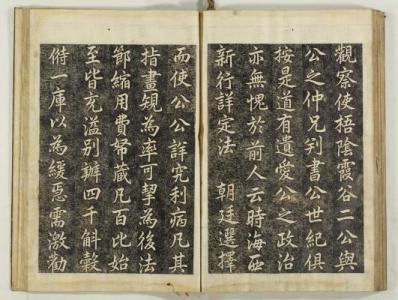 觀察使梧陰霞谷二公與
公之仲兄判書公世紀俱
按是道有遺愛公之政治
亦無愧於前人云時海西
新行詳定法 朝廷選擇
而使公公詳究利病凡其
指畫規為率可挈為後法
節縮用費帑藏凡百比始
至皆充溢別辦四千斛穀
偫一庫以為緩急需激勸